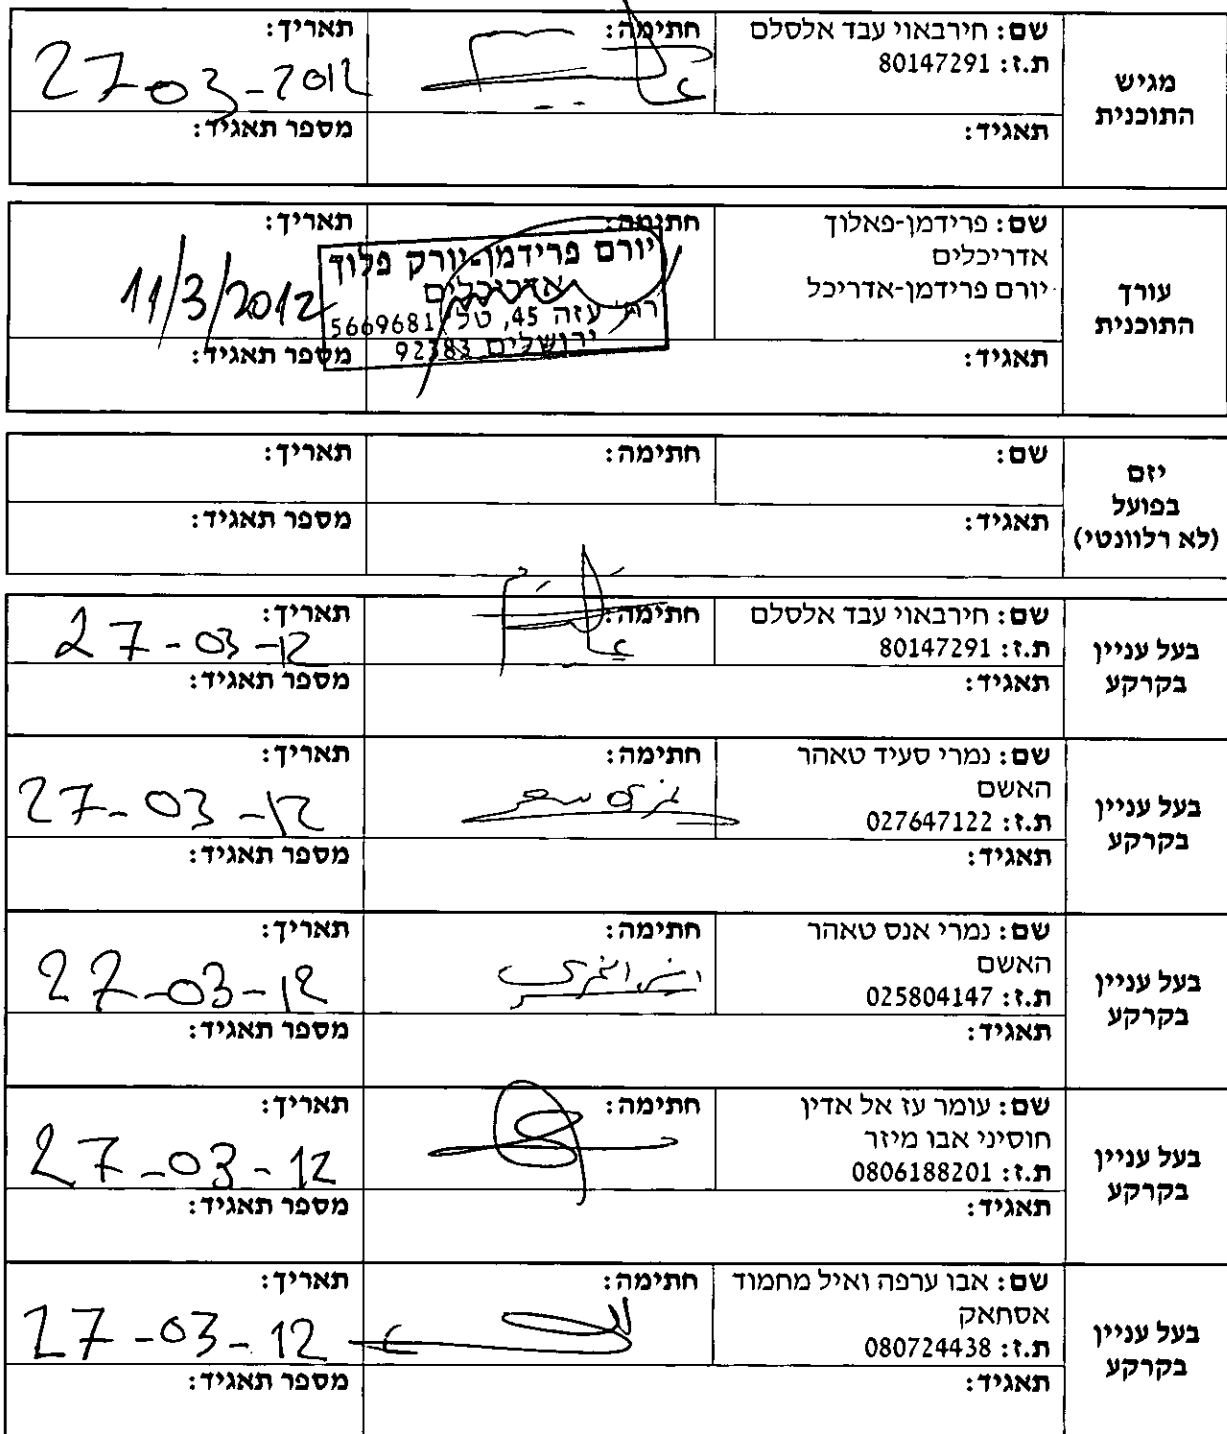 מגיש
התוכנית
שם: חירבאוי עבד אלסלם
ת.ז: 80147291
חתימה:
תאריך:
27-03-2012
תאגיד:
מספר תאגיד:
עורך
התוכנית
שם: פרידמן-פאלוך
אדריכלים
יורם פרידמן-אדריכל
חתימה:
יורם פרידמן-יורק פלוך
אדריכלים
רח' עזה 45, טל' 5669681
ירושלים 92383
תאריך:
11/3/2012
תאגיד:
מספר תאגיד:
יזם
בפועל
(לא רלוונטי)
שם:
חתימה:
תאריך:
תאגיד:
מספר תאגיד:
בעל עניין
בקרקע
שם: חירבאוי עבד אלסלם
ת.ז: 80147291
חתימה:
תאריך:
27-03-12
תאגיד:
מספר תאגיד:
בעל עניין
בקרקע
שם: נמרי סעיד טאהר
האשם
ת.ז: 027647122
חתימה:
תאריך:
27-03-12
תאגיד:
מספר תאגיד:
בעל עניין
בקרקע
שם: נמרי אנס טאהר
האשם
ת.ז: 025804147
חתימה:
תאריך:
27-03-12
תאגיד:
מספר תאגיד:
בעל עניין
בקרקע
שם: עומר עז אל אדין
חוסיני אבו מיזר
ת.ז: 0806188201
חתימה:
תאריך:
27-03-12
תאגיד:
מספר תאגיד:
בעל עניין
בקרקע
שם: אבו ערפה ואיל מחמוד
אסחאק
ת.ז: 080724438
חתימה:
תאריך:
27-03-12
תאגיד:
מספר תאגיד: